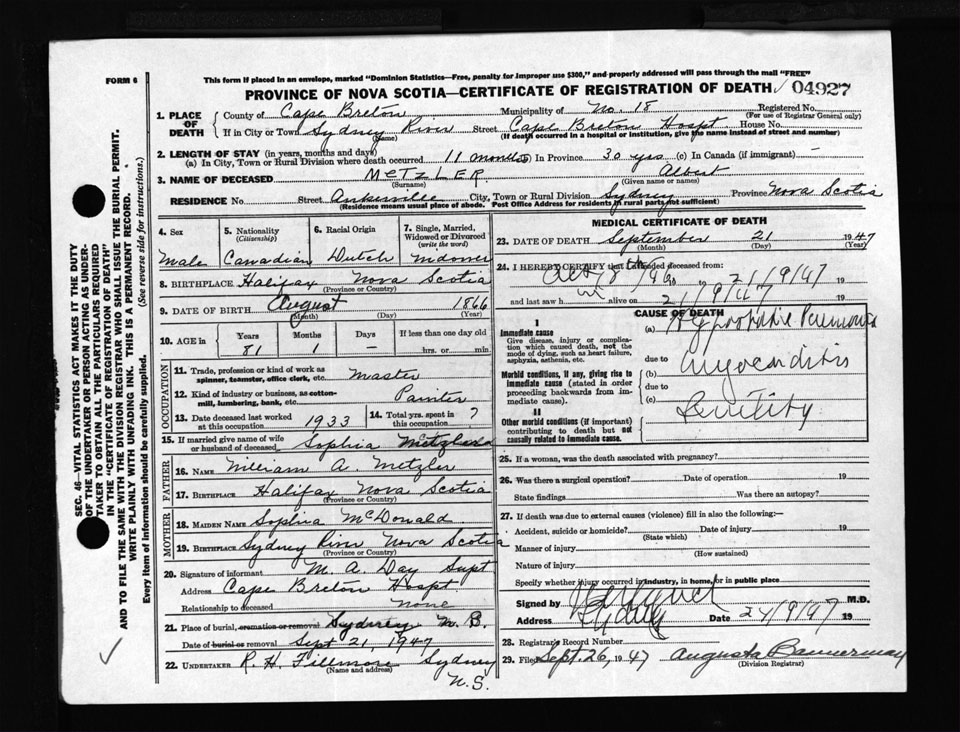 FORM 6
This form if placed in an envelope, marked "Dominion Statistics—Free, penalty for improper use $300," and properly addressed will pass through the mail "FREE"
PROVINCE OF NOVA SCOTIA—CERTIFICATE OF REGISTRATION OF DEATH 04927
1. PLACE OF DEATH
County of Cape Breton Municipality of No. 18 Registered No.
(For use of Registrar General only)
If in City or Town Sydney River Street Cape Breton Hospt. House No.
(Name) (If death occurred in a hospital or institution, give the name instead of street and number)
2. LENGTH OF STAY (in years, months and days)
(a) In City, Town or Rural Division where death occurred 11 months In Province 30 yrs (c) In Canada (if immigrant) —
3. NAME OF DECEASED METZLER Albert
(Surname) (Given name or names)
RESIDENCE No. Street City, Town or Rural Division Sydney Province Nova Scotia
(Residence means usual place of abode. Post Office Address for residents in rural parts not sufficient)
4. Sex
Male
5. Nationality
(Citizenship)
Canadian
6. Racial Origin
Dutch
7. Single, Married, Widowed or Divorced
(write the word)
Widower
8. BIRTHPLACE Halifax Nova Scotia
(Province or Country)
9. DATE OF BIRTH August 1866
(Month) (Day) (Year)
10. AGE in Years Months Days If less than one day old
81 1 hrs. or min
OCCUPATION
11. Trade, profession or kind of work as spinner, teamster, office clerk, etc. Master
12. Kind of industry or business, as cotton-mill, lumbering, bank, etc. Painter
13. Date deceased last worked at this occupation 1933
14. Total yrs. spent in this occupation ?
15. If married give name of wife or husband of deceased Sophia
FATHER
16. NAME William A. Metzler
17. BIRTHPLACE Halifax Nova Scotia
(Province or Country)
MOTHER
18. MAIDEN NAME Sophia McDonald
19. BIRTHPLACE Sydney River Nova Scotia
(Province or Country)
20. Signature of informant M. A. Day Supt
Address Cape Breton Hospt.
Relationship to deceased none
21. Place of burial, cremation or removal Sydney
Date of burial or removal Sept 21, 1947
22. UNDERTAKER R. H. Fillmore Sydney
(Name and address)
N.S.
MEDICAL CERTIFICATE OF DEATH
23. DATE OF DEATH September 21 1947
(Month) (Day) (Year)
24. I HEREBY CERTIFY that I attended deceased from:
21/9/47 19
and last saw h im alive on 21/9/47 19
CAUSE OF DEATH
I
Immediate cause
Give disease, injury or complication which caused death, not the mode of dying, such as heart failure, asphyxia, asthenia, etc.
(a) Hypostatic Pneumonia
due to
Morbid conditions, if any, giving rise to immediate cause (stated in order proceeding backwards from immediate cause).
(b) Myocarditis
due to
(c) Senility
II
Other morbid conditions (if important) contributing to death but not causally related to immediate cause.
25. If a woman, was the death associated with pregnancy?
26. Was there a surgical operation? Date of operation 19
State findings Was there an autopsy?
27. If death was due to external causes (violence) fill in also the following:—
Accident, suicide or homicide? Date of injury 19
(State which)
Manner of injury
(How sustained)
Nature of injury
Specify whether injury occurred in industry, in home, or in public place
Signed by M.D.
Address Sydney Date 24/9/47 19
28. Registrar's Record Number
29. Filed Sept. 26, 1947 Augusta Bannerman
(Division Registrar)
SEC. 46—VITAL STATISTICS ACT MAKES IT THE DUTY
OF THE UNDERTAKER OR PERSON ACTING AS UNDER-
TAKER TO OBTAIN ALL THE PARTICULARS REQUIRED
IN THE "CERTIFICATE OF REGISTRATION OF DEATH"
AND TO FILE THE SAME WITH THE DIVISION REGISTRAR WHO SHALL ISSUE THE BURIAL PERMIT.
WRITE PLAINLY WITH UNFADING INK. THIS IS A PERMANENT RECORD.
Every item of information should be carefully supplied. (See reverse side for instructions.)